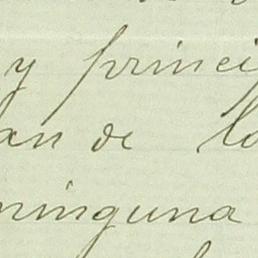 y princi
an de lo
ninguna